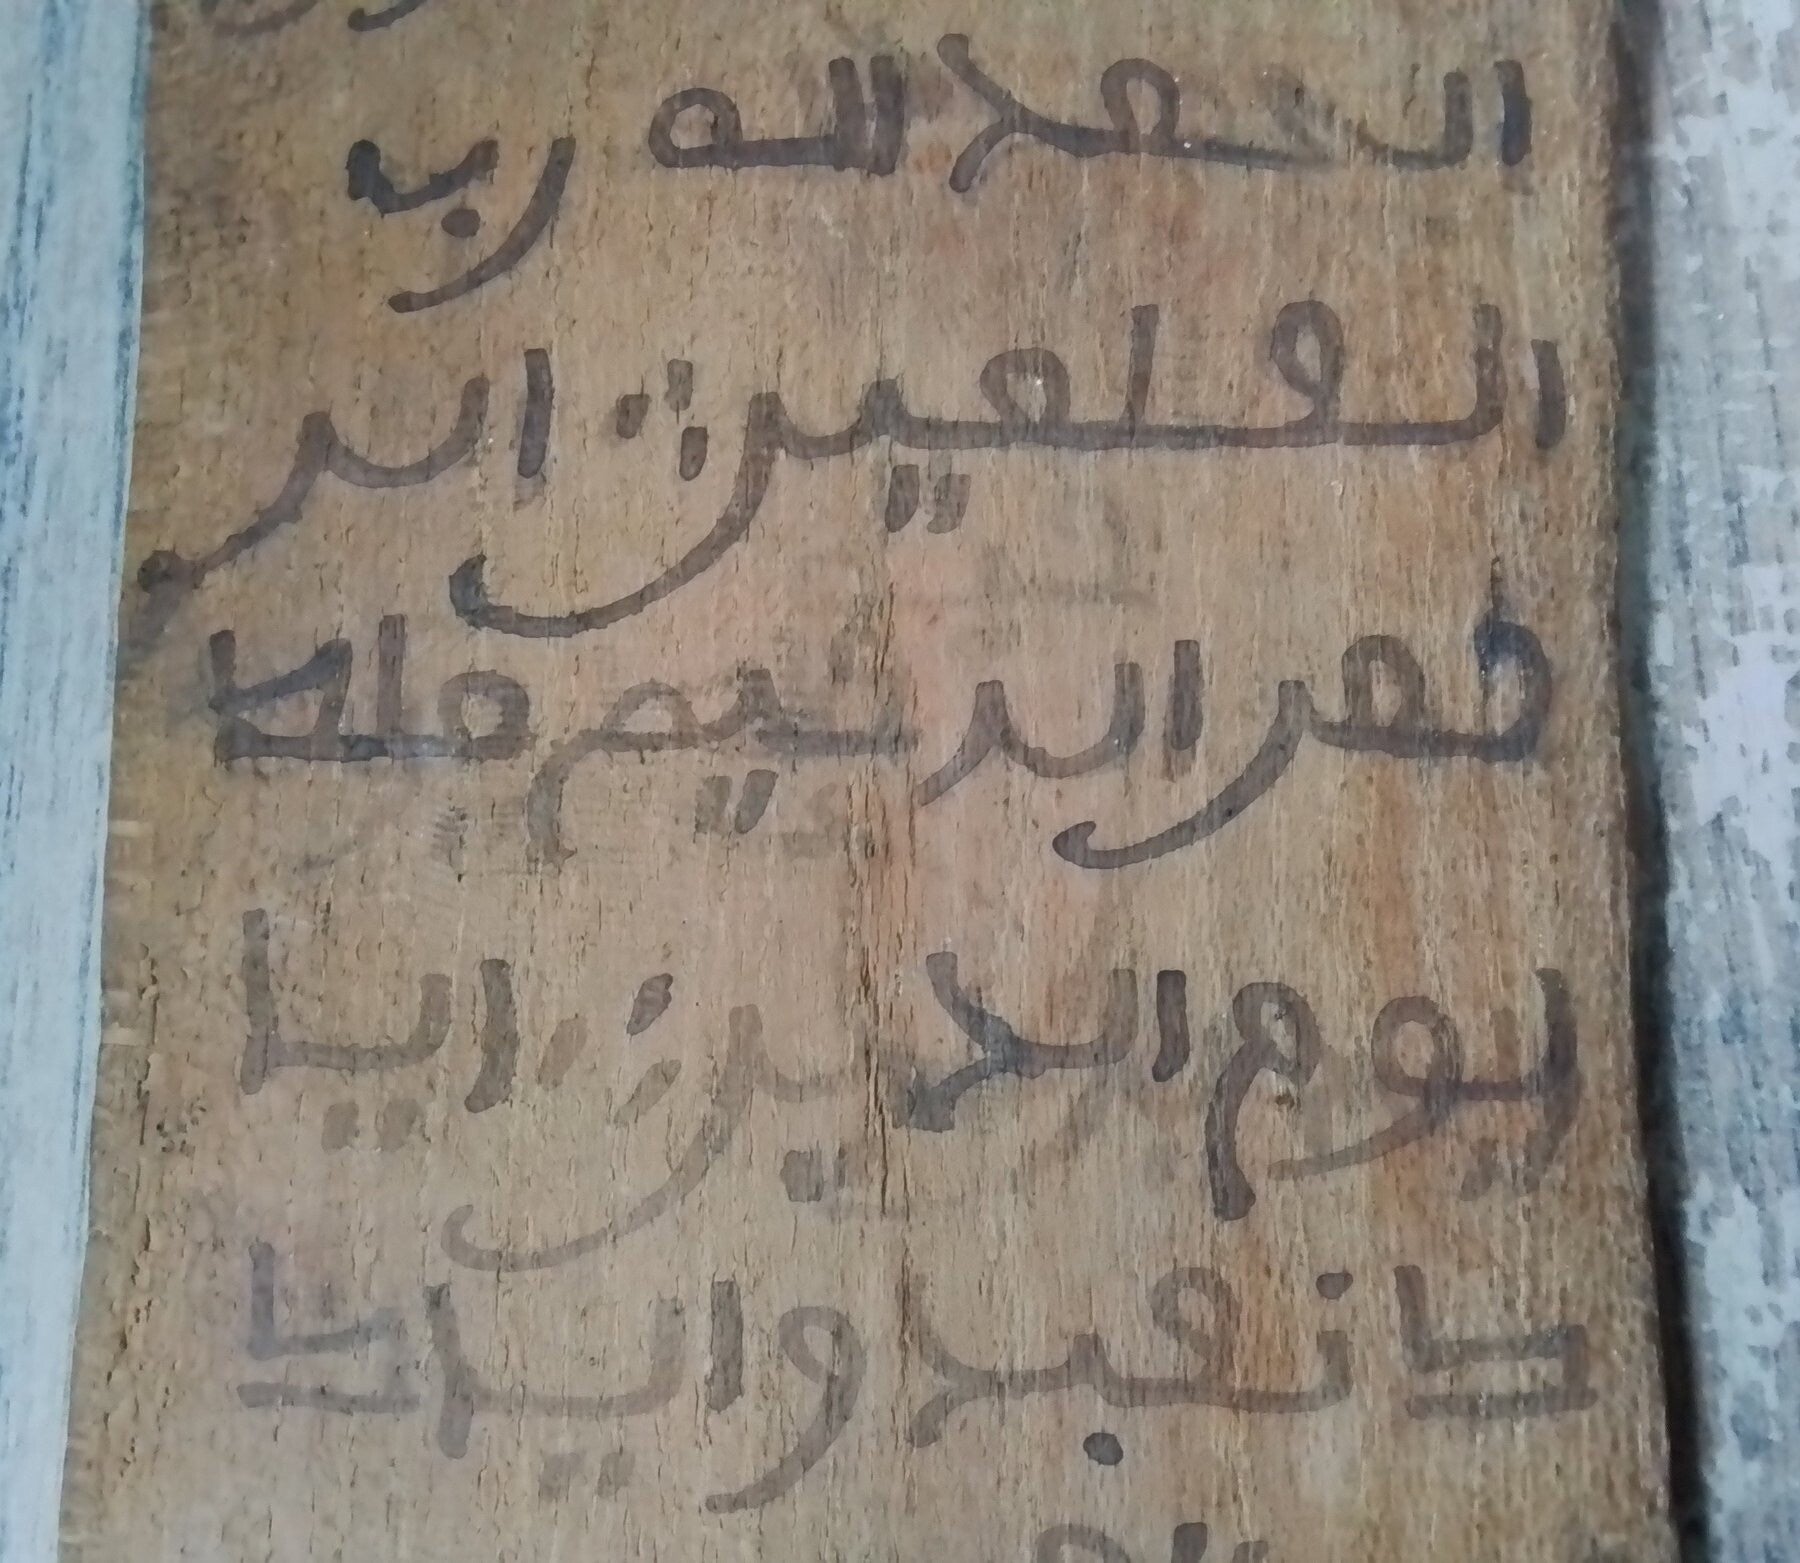 الحمد لله رب
العلمين ∴ الر
حمن الرحيم ملك
يوم الدين ∴ ايا
ك نعبد واياك